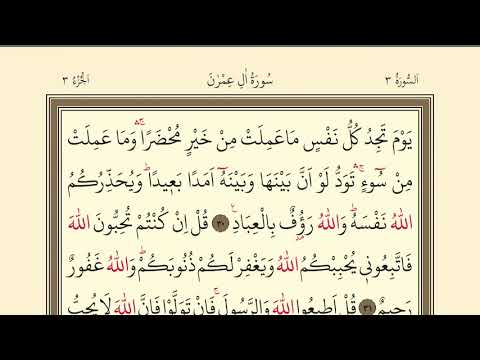 اَلسُّورَةُ ٣ سُورَةُ اٰلِ عِمْرٰنَ اَلْجُزْءُ ٣
يَوْمَ تَجِدُ كُلُّ نَفْسٍ مَاعَمِلَتْ مِنْ خَيْرٍ مُحْضَرًاۚۛ وَمَا عَمِلَتْ
مِنْ سُٓوءٍۚۛ تَوَدُّ لَوْ اَنَّ بَيْنَهَا وَبَيْنَهُٓ اَمَدًا بَعِيدًاۜ وَيُحَذِّرُكُمُ
اللّٰهُ نَفْسَهُۜ وَاللّٰهُ رَؤُ۫فٌ بِالْعِبَادِ۟ ﴿٣٠﴾ قُلْ اِنْ كُنْتُمْ تُحِبُّونَ اللّٰهَ
فَاتَّبِعُونٖي يُحْبِبْكُمُ اللّٰهُ وَيَغْفِرْ لَكُمْ ذُنُوبَكُمْۜ وَاللّٰهُ غَفُورٌ
رَحٖيمٌ ﴿٣١﴾ قُلْ اَطٖيعُوا اللّٰهَ وَالرَّسُولَۚ فَاِنْ تَوَلَّوْا فَاِنَّ اللّٰهَ لَا يُحِبُّ